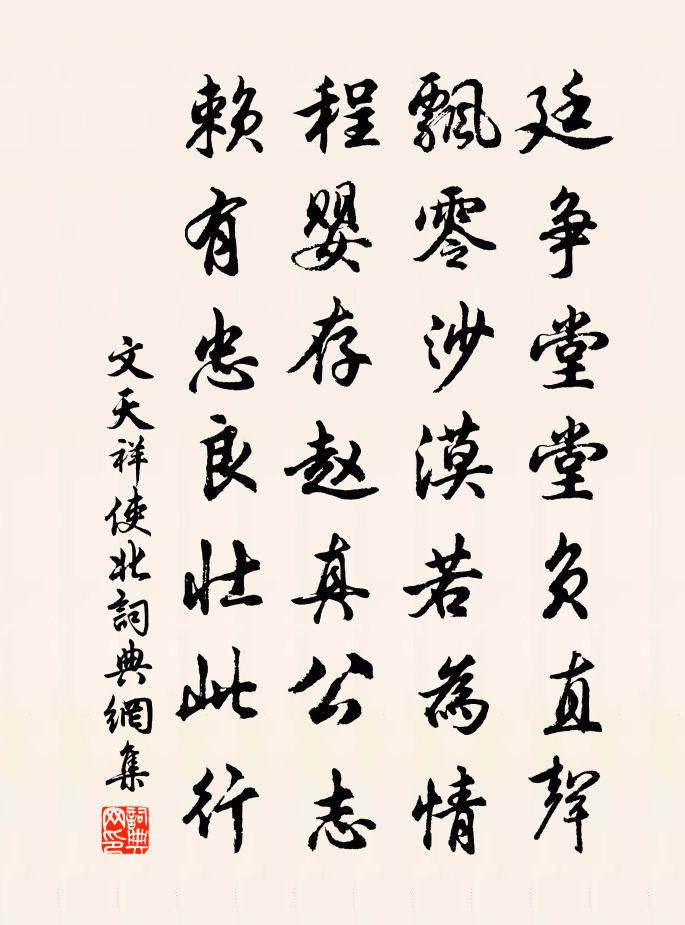 廷争堂堂负直聲
飄零沙漠若為情
程嬰存赵真公志
赖有忠良壮此行
文天祥使北詞典網集
詞典网印